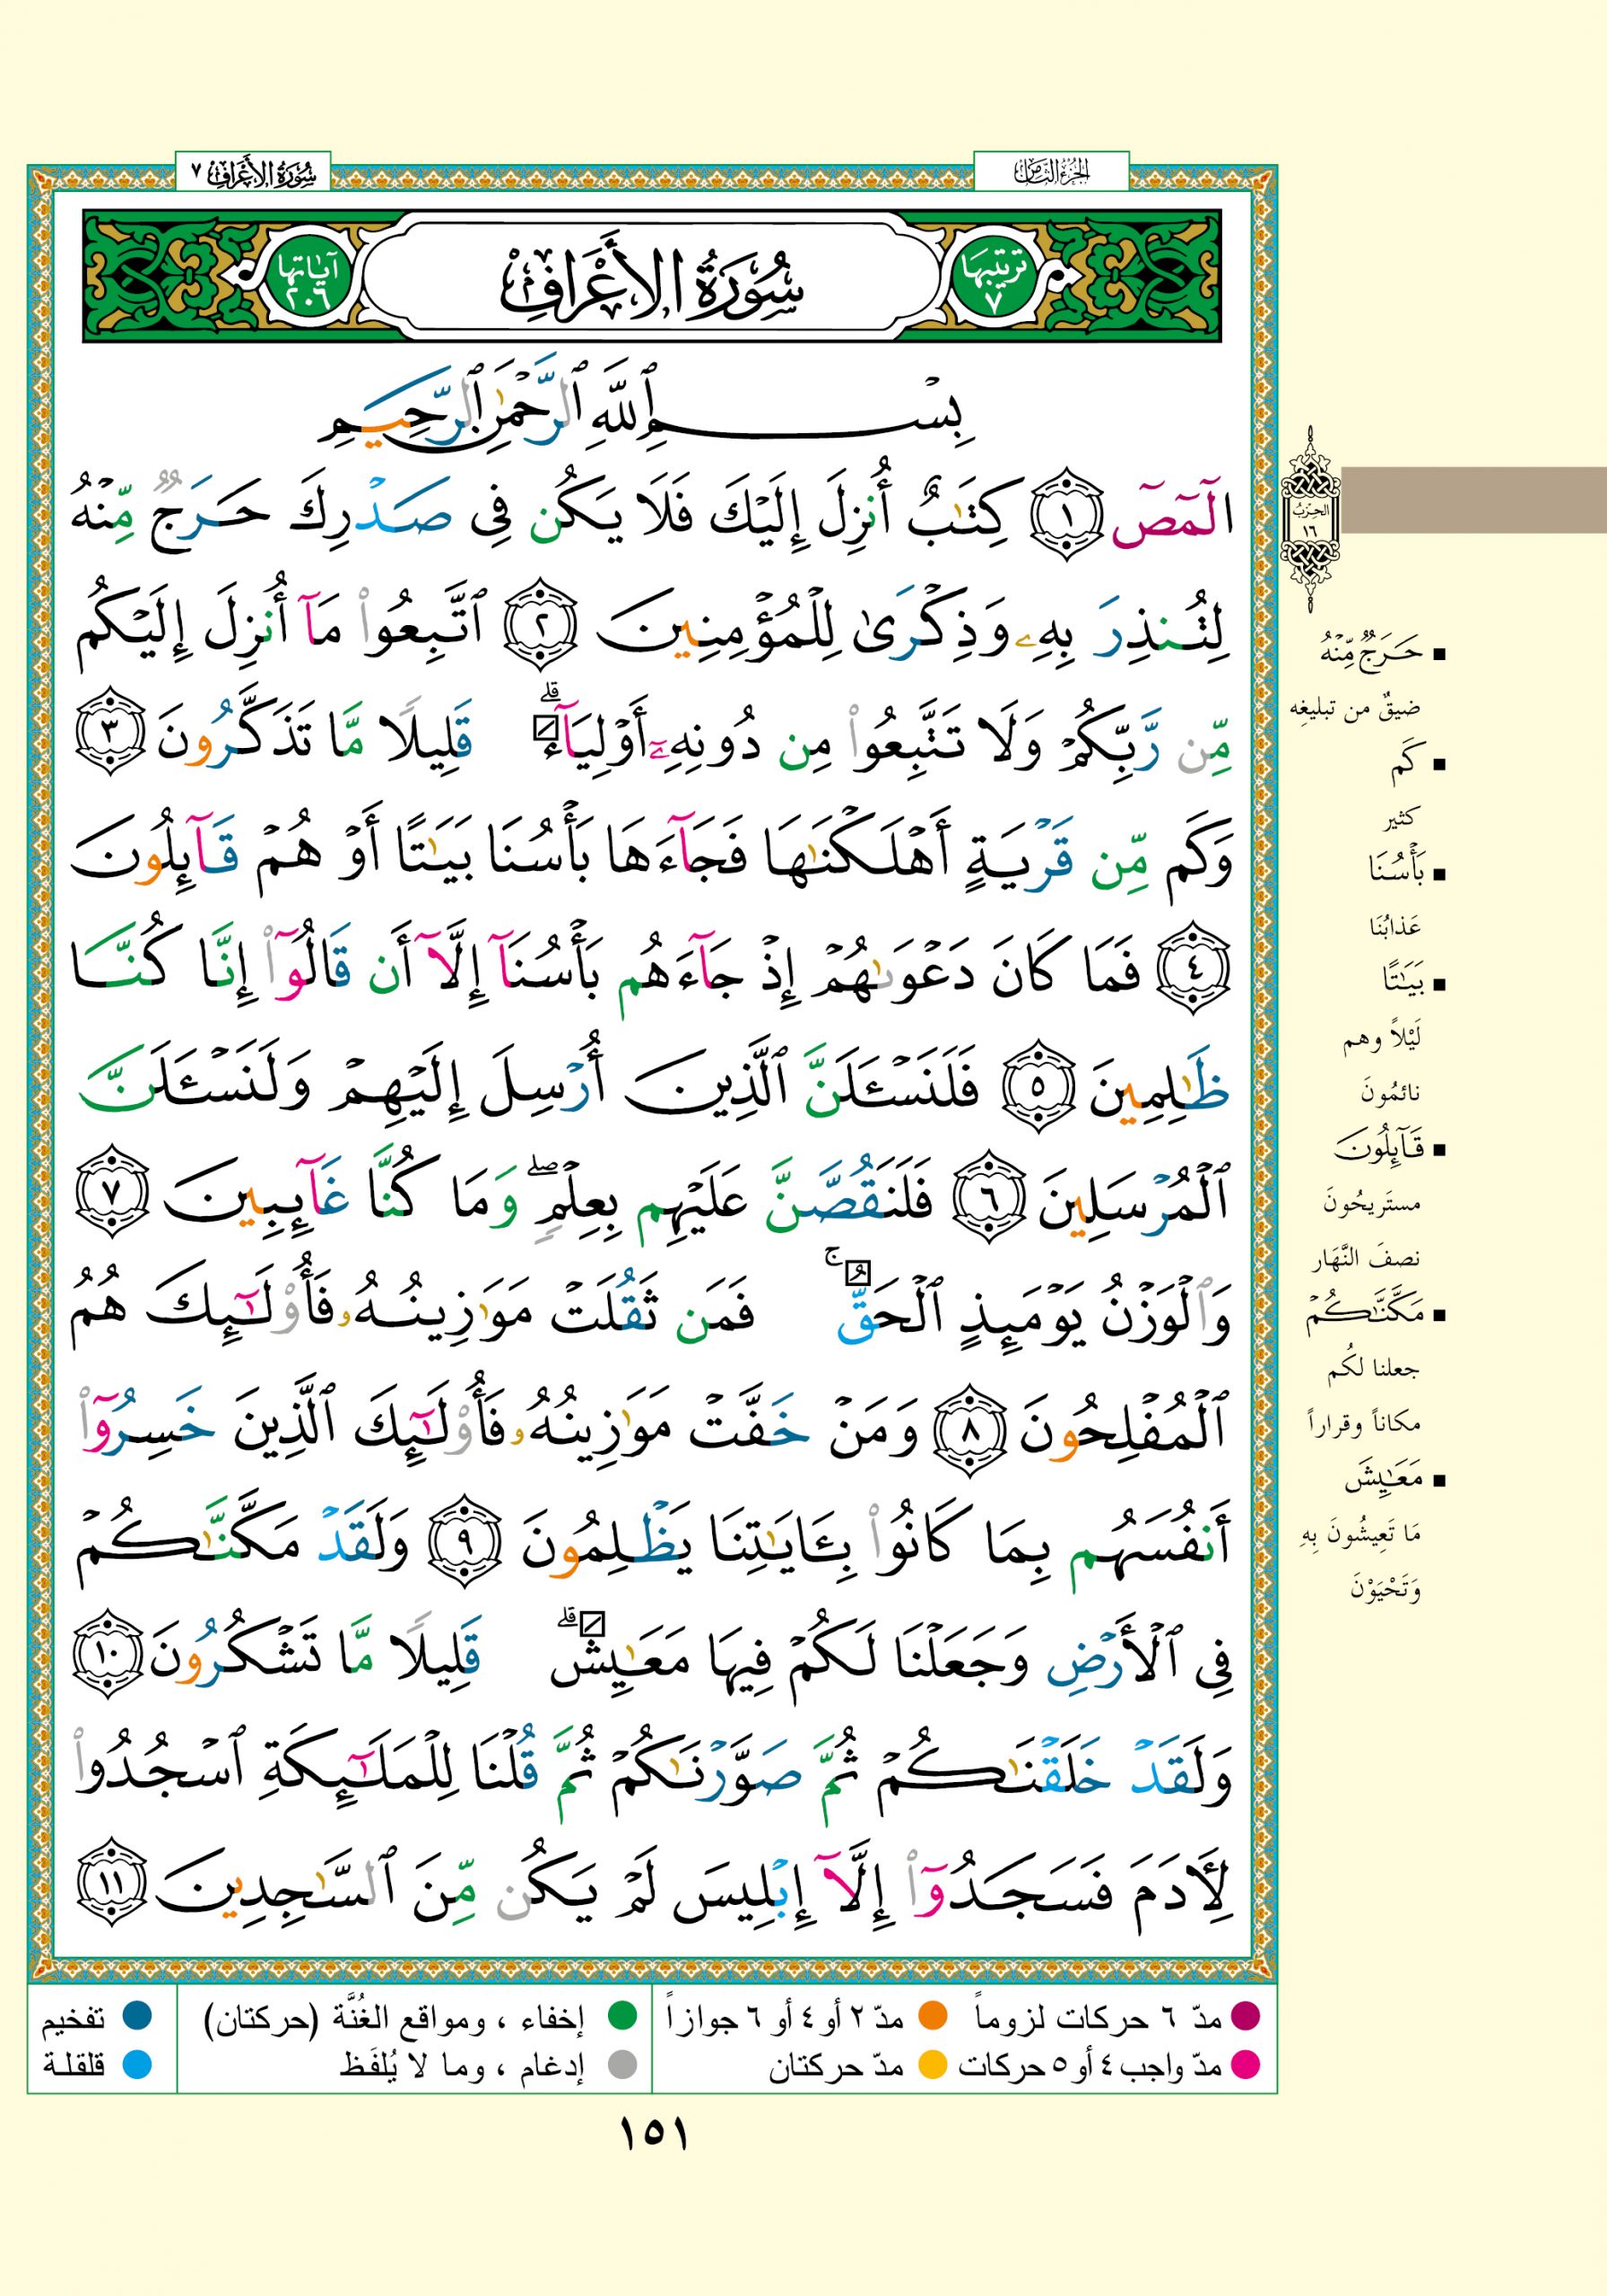 الجزء الثامن
سورة الأعراف ٧
ترتيبها ٧
سُورَةُ الأَعْرَافِ
آياتها ٢٠٦
بِسْمِ ٱللَّهِ ٱلرَّحْمَٰنِ ٱلرَّحِيمِ
الٓمٓصٓ ١ كِتَٰبٌ أُنزِلَ إِلَيْكَ فَلَا يَكُن فِى صَدْرِكَ حَرَجٌ مِّنْهُ
لِتُنذِرَ بِهِۦ وَذِكْرَىٰ لِلْمُؤْمِنِينَ ٢ ٱتَّبِعُوا۟ مَآ أُنزِلَ إِلَيْكُم
مِّن رَّبِّكُمْ وَلَا تَتَّبِعُوا۟ مِن دُونِهِۦٓ أَوْلِيَآءَ ۗ قَلِيلًا مَّا تَذَكَّرُونَ ٣
وَكَم مِّن قَرْيَةٍ أَهْلَكْنَٰهَا فَجَآءَهَا بَأْسُنَا بَيَٰتًا أَوْ هُمْ قَآئِلُونَ
٤ فَمَا كَانَ دَعْوَىٰهُمْ إِذْ جَآءَهُم بَأْسُنَآ إِلَّآ أَن قَالُوٓا۟ إِنَّا كُنَّا
ظَٰلِمِينَ ٥ فَلَنَسْـَٔلَنَّ ٱلَّذِينَ أُرْسِلَ إِلَيْهِمْ وَلَنَسْـَٔلَنَّ
ٱلْمُرْسَلِينَ ٦ فَلَنَقُصَّنَّ عَلَيْهِم بِعِلْمٍ ۖ وَمَا كُنَّا غَآئِبِينَ ٧
وَٱلْوَزْنُ يَوْمَئِذٍ ٱلْحَقُّ ۚ فَمَن ثَقُلَتْ مَوَٰزِينُهُۥ فَأُو۟لَٰٓئِكَ هُمُ
ٱلْمُفْلِحُونَ ٨ وَمَنْ خَفَّتْ مَوَٰزِينُهُۥ فَأُو۟لَٰٓئِكَ ٱلَّذِينَ خَسِرُوٓا۟
أَنفُسَهُم بِمَا كَانُوا۟ بِـَٔايَٰتِنَا يَظْلِمُونَ ٩ وَلَقَدْ مَكَّنَّٰكُمْ
فِى ٱلْأَرْضِ وَجَعَلْنَا لَكُمْ فِيهَا مَعَٰيِشَ ۗ قَلِيلًا مَّا تَشْكُرُونَ ١٠
وَلَقَدْ خَلَقْنَٰكُمْ ثُمَّ صَوَّرْنَٰكُمْ ثُمَّ قُلْنَا لِلْمَلَٰٓئِكَةِ ٱسْجُدُوا۟
لِـَٔادَمَ فَسَجَدُوٓا۟ إِلَّآ إِبْلِيسَ لَمْ يَكُن مِّنَ ٱلسَّٰجِدِينَ ١١
الحزب
١٦
حَرَجٌ مِّنْهُ
ضيقٌ من تبليغِه
كَم
كثير
بَأْسُنَا
عَذابُنَا
بَيَٰتًا
لَيْلاً وهم
نائمُونَ
قَآئِلُونَ
مستَريحُونَ
نصفَ النَّهَار
مَكَّنَّٰكُمْ
جعلنا لكُم
مكاناً وقراراً
مَعَٰيِشَ
مَا تَعِيشُونَ بِهِ
وَتَحْيَوْنَ
مدّ ٦ حركات لزوماً مدّ ٢ أو ٤ أو ٦ جوازاً إخفاء ، ومواقع الغُنَّة (حركتان) تفخيم
مدّ واجب ٤ أو ٥ حركات مدّ حركتان إدغام ، وما لا يُلفَظ قلقلة
١٥١